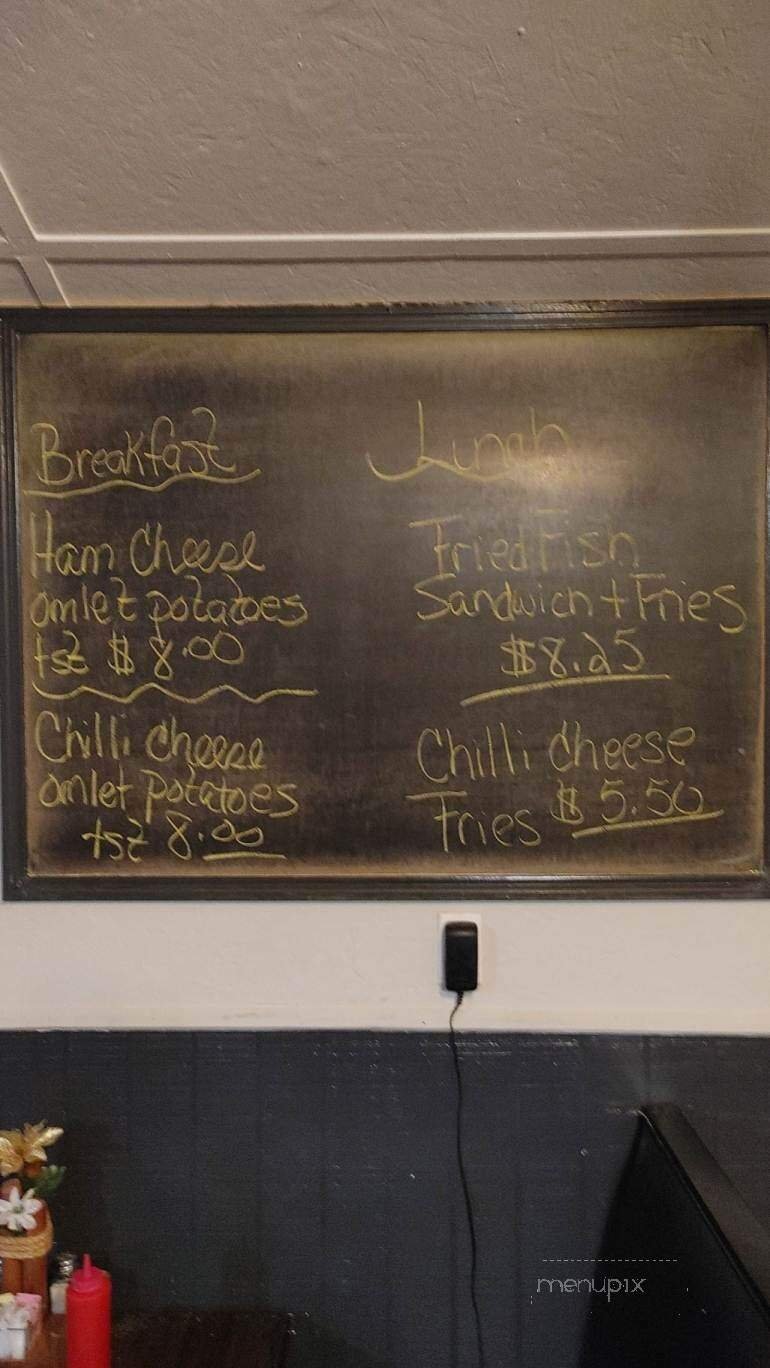 Breakfast
Ham Cheese
omlet potatoes
tst $ 8.00
Chilli Cheese
omlet potatoes
tst 8.00
Lunch
Fried Fish
Sandwich + Fries
$8.25
Chilli Cheese
Fries $ 5.50
menupix